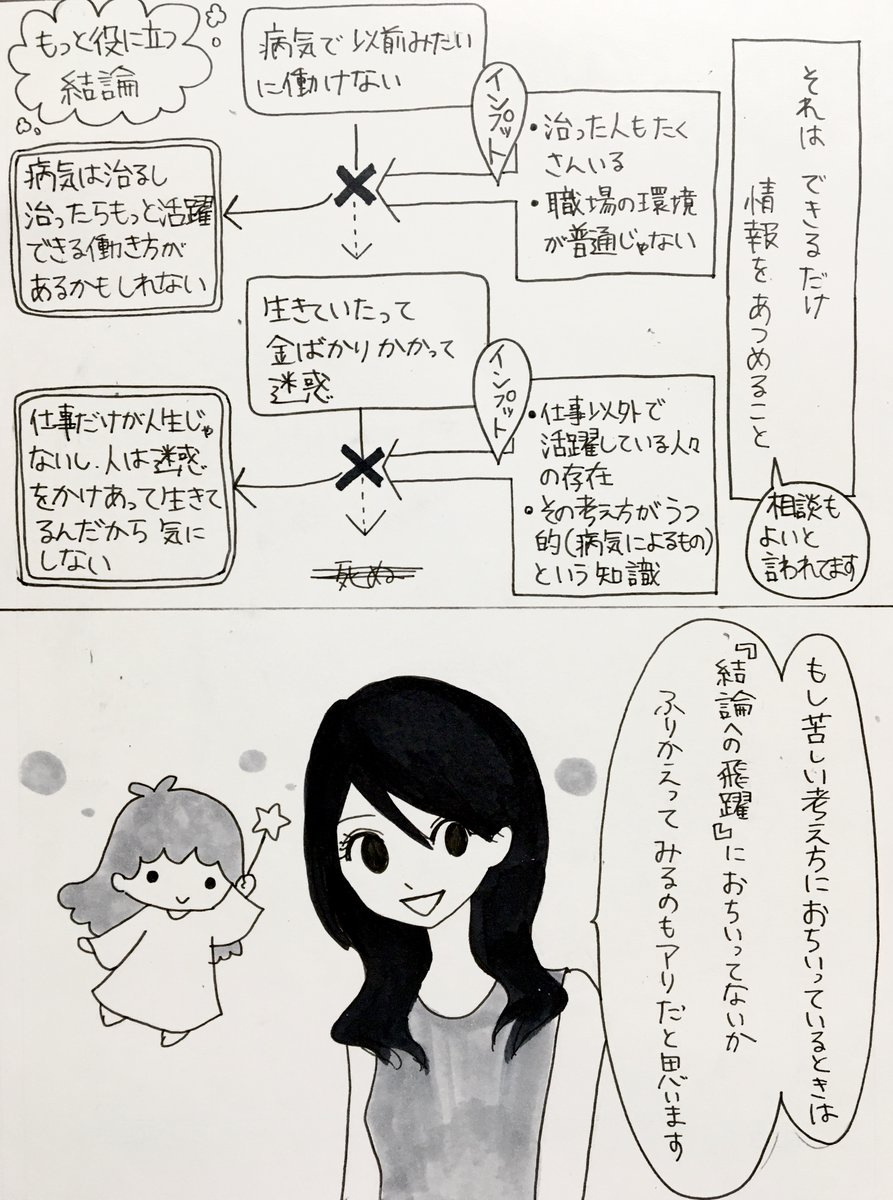 それは できるだけ
情報を あつめること
相談も
よいと
言われてます
もっと役に立つ
結論
病気で 以前みたい
に働けない
インプット
・治った人もたく
さんいる
・職場の環境
が普通じゃない
病気は治るし
治ったらもっと活躍
できる働き方が
あるかもしれない
生きていたって
金ばかりかかって
迷惑
インプット
・仕事以外で
活躍している人々
の存在
・その考え方がうつ
的(病気によるもの)
という知識
仕事だけが人生じゃ
ないし、人は迷惑
をかけあって生きて
るんだから 気に
しない
死ぬ
もし苦しい考えちにおちいっているときは
『結論への飛躍』におちいってないか
ふりかえって みるのもアリだと思います